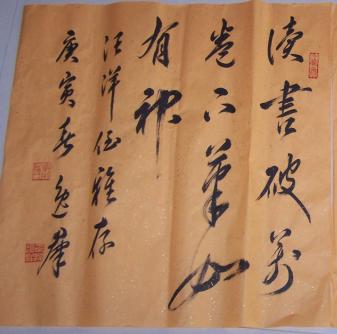 读书破万
卷下笔如
有神
汪洋侄雅存
庚寅春逸群